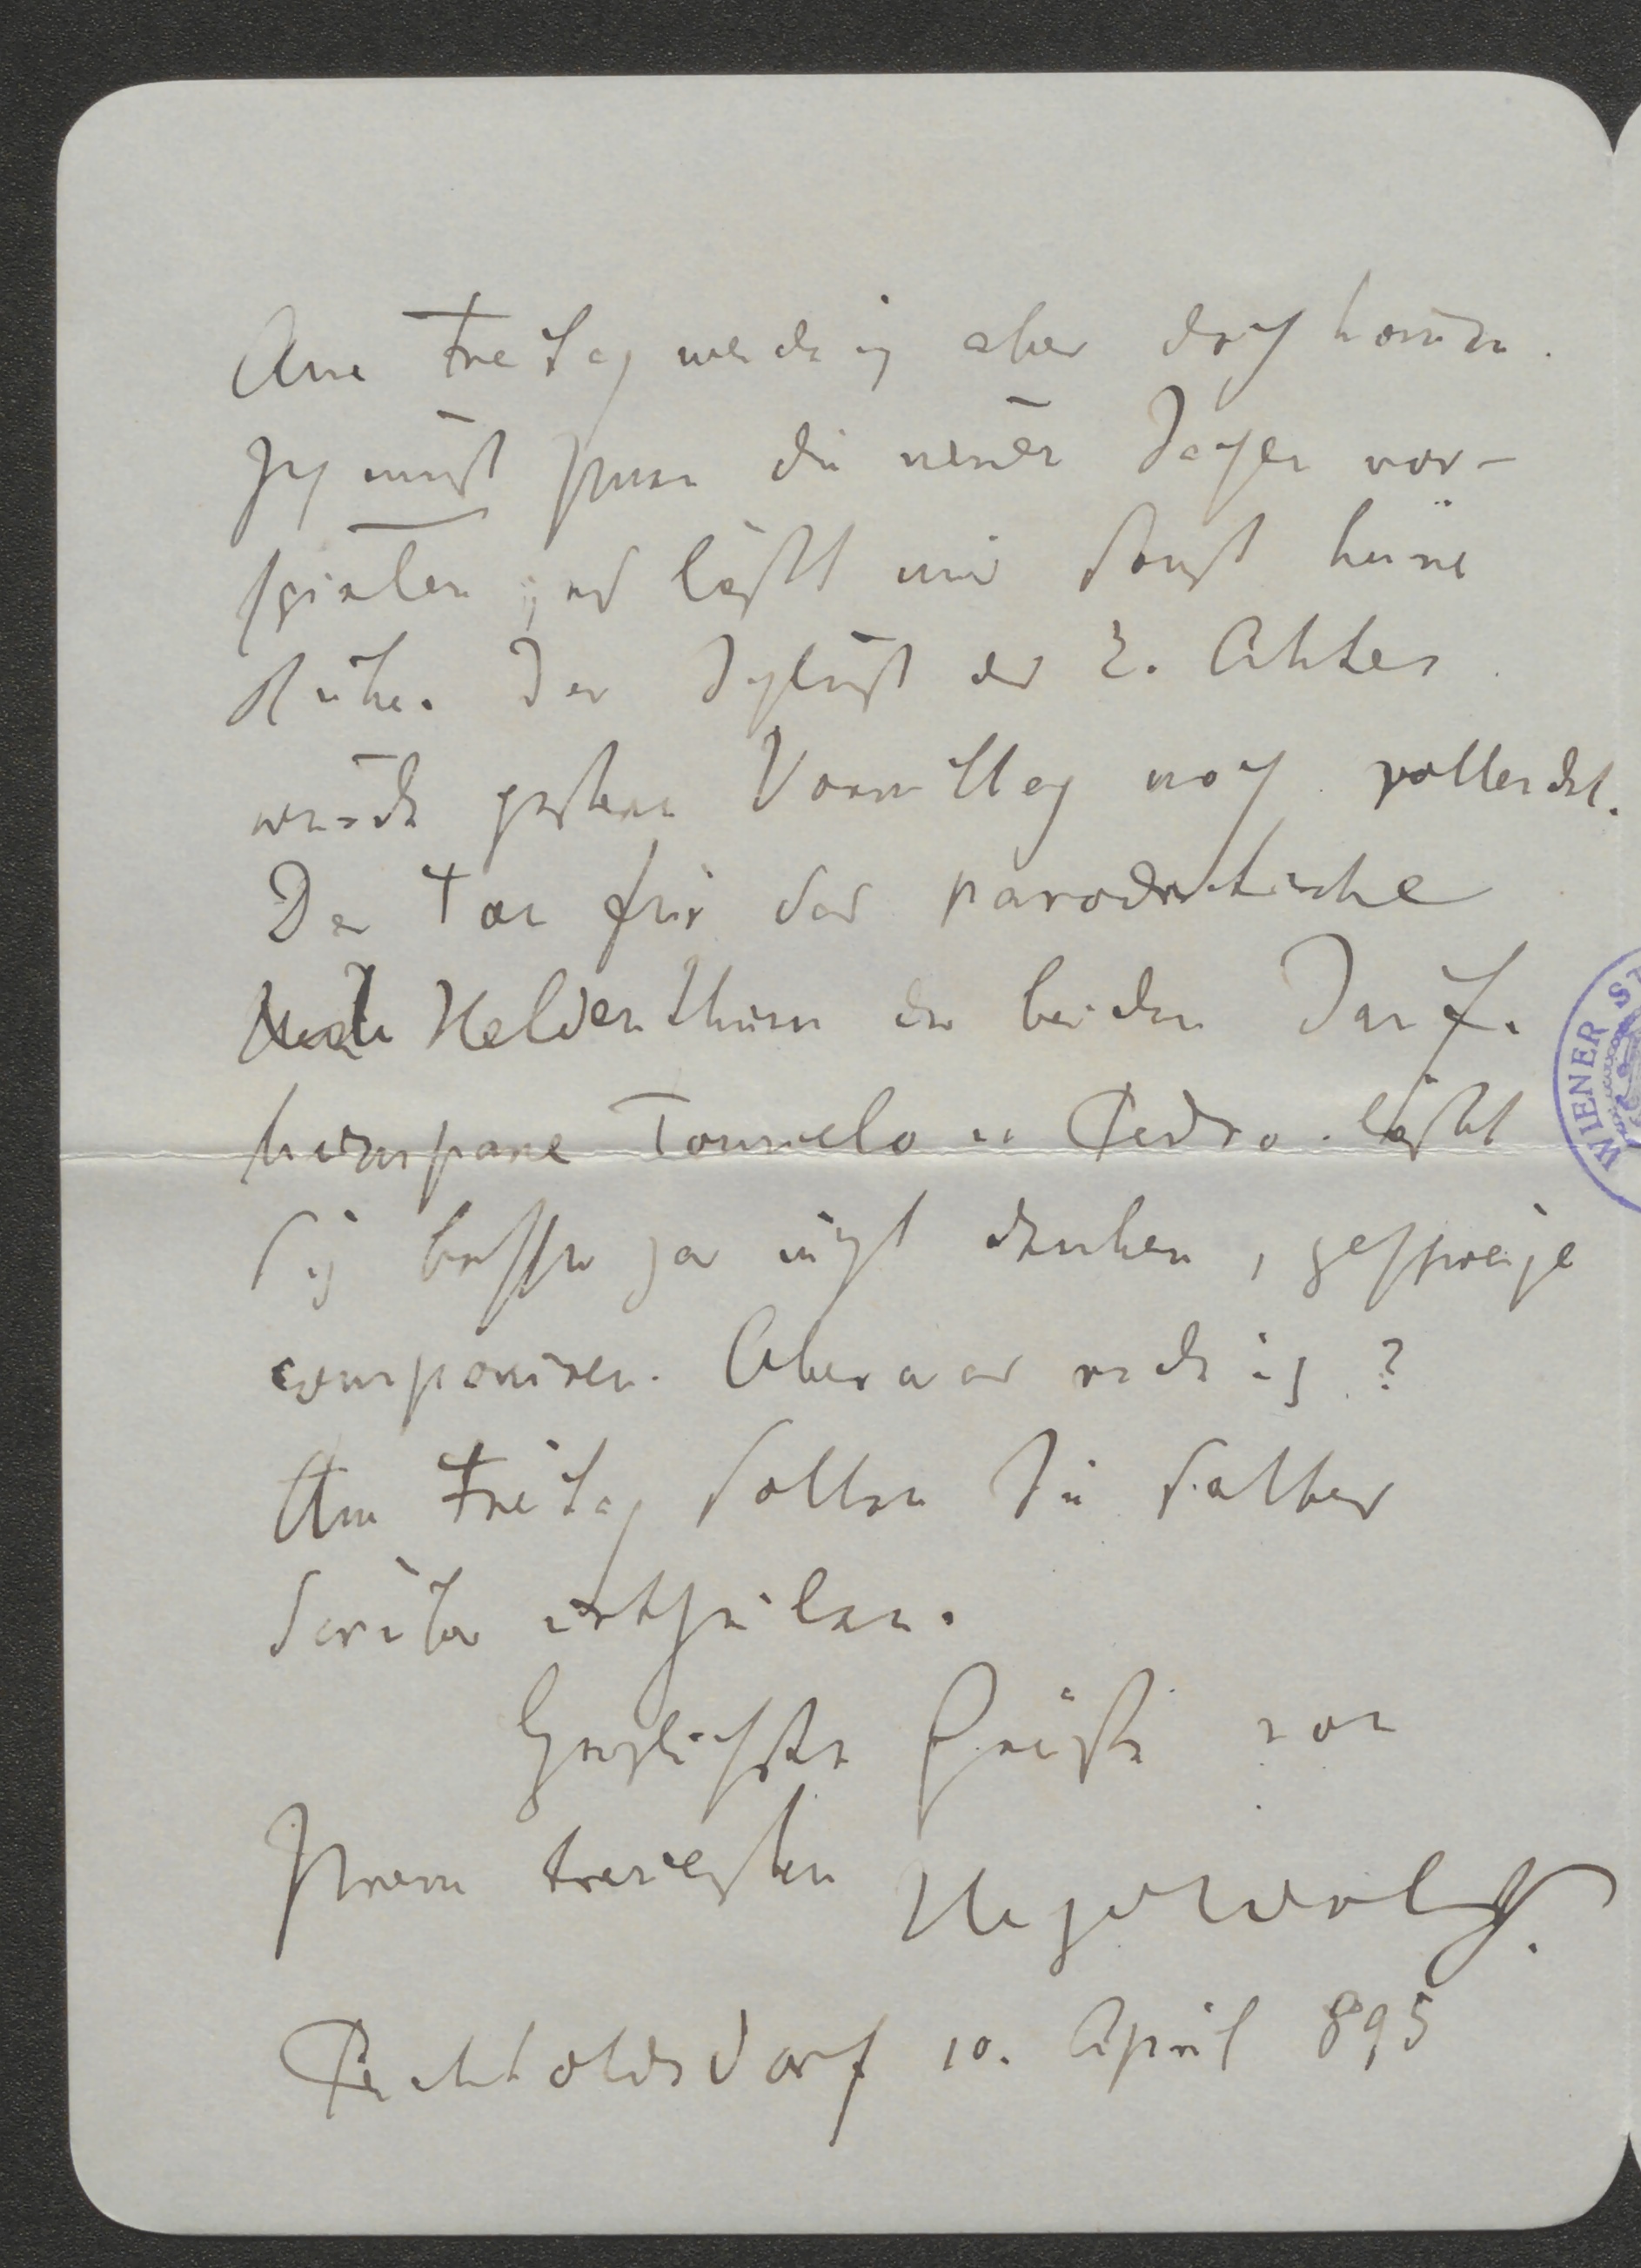 Am Freitag werde ich aber doch kom̄en.
Ich muß Ihnen die neuen Sachen vor-
spielen, es läßt mir sonst keine
Ruhe. Der Schluß des 2. Aktes
wurde gestern Vormittag noch vollendet.
Der Ton für das parodistische
Heldenthum der beiden Dorf-
kumpane Tonuelo u Pedro läßt
sich besser gar nicht denken, geschweige
componiren. Aber was rede ich?
Am Freitag sollen Sie selber
darüber urtheilen.
Herzlichste Grüße von
Ihrem treuesten Hugo Wolf.
Perchtoldsdorf 10. April 895
WIENER ST